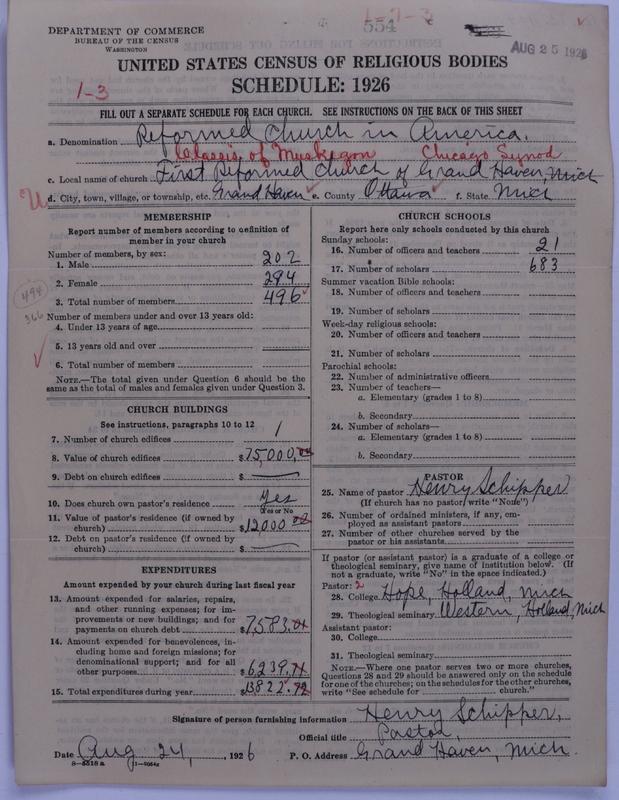 1-7-3
554
DEPARTMENT OF COMMERCE
BUREAU OF THE CENSUS
WASHINGTON
AUG 25 1926
UNITED STATES CENSUS OF RELIGIOUS BODIES
SCHEDULE: 1926
1-3
FILL OUT A SEPARATE SCHEDULE FOR EACH CHURCH. SEE INSTRUCTIONS ON THE BACK OF THIS SHEET
a. Denomination Reformed Church in America.
Classis of Muskegon Chicago Synod
c. Local name of church First Reformed Church of Grand Haven, Mich
d. City, town, village, or township, etc. Grand Haven e. County Ottawa f. State Mich
MEMBERSHIP
Report number of members according to definition of
member in your church
Number of members, by sex:
1. Male 202
2. Female 294
3. Total number of members 496
494
366
Number of members under and over 13 years old:
4. Under 13 years of age
5. 13 years old and over
6. Total number of members
NOTE.—The total given under Question 6 should be the
same as the total of males and females given under Question 3.
CHURCH BUILDINGS
See instructions, paragraphs 10 to 12
7. Number of church edifices 1
8. Value of church edifices $75,000.00
9. Debt on church edifices $
10. Does church own pastor's residence Yes
(Yes or No)
11. Value of pastor's residence (if owned by
church) $12000 00
12. Debt on pastor's residence (if owned by
church) $
EXPENDITURES
Amount expended by your church during last fiscal year
13. Amount expended for salaries, repairs,
and other running expenses; for im-
provements or new buildings; and for
payments on church debt $7,583.01
14. Amount expended for benevolences, in-
cluding home and foreign missions; for
denominational support; and for all
other purposes $6239.71
15. Total expenditures during year $13822.72
CHURCH SCHOOLS
Report here only schools conducted by this church
Sunday schools:
16. Number of officers and teachers 21
17. Number of scholars 683
Summer vacation Bible schools:
18. Number of officers and teachers
19. Number of scholars
Week-day religious schools:
20. Number of officers and teachers
21. Number of scholars
Parochial schools:
22. Number of administrative officers
23. Number of teachers—
a. Elementary (grades 1 to 8)
b. Secondary
24. Number of scholars—
a. Elementary (grades 1 to 8)
b. Secondary
PASTOR
25. Name of pastor Henry Schipper
(If church has no pastor, write "None")
26. Number of ordained ministers, if any, em-
ployed as assistant pastors
27. Number of other churches served by the
pastor or his assistants
If pastor (or assistant pastor) is a graduate of a college or
theological seminary, give name of institution below. (If
not a graduate, write "No" in the space indicated.)
Pastor: 2
28. College Hope, Holland, Mich
29. Theological seminary Western, Holland, Mich
Assistant pastor:
30. College
31. Theological seminary
NOTE.—Where one pastor serves two or more churches,
Questions 28 and 29 should be answered only on the schedule
for one of the churches; on the schedules for the other churches,
write "See schedule for church."
Signature of person furnishing information Henry Schipper,
Official title Pastor,
Date Aug 24, 1926 P. O. Address Grand Haven, Mich.
8-5518 a